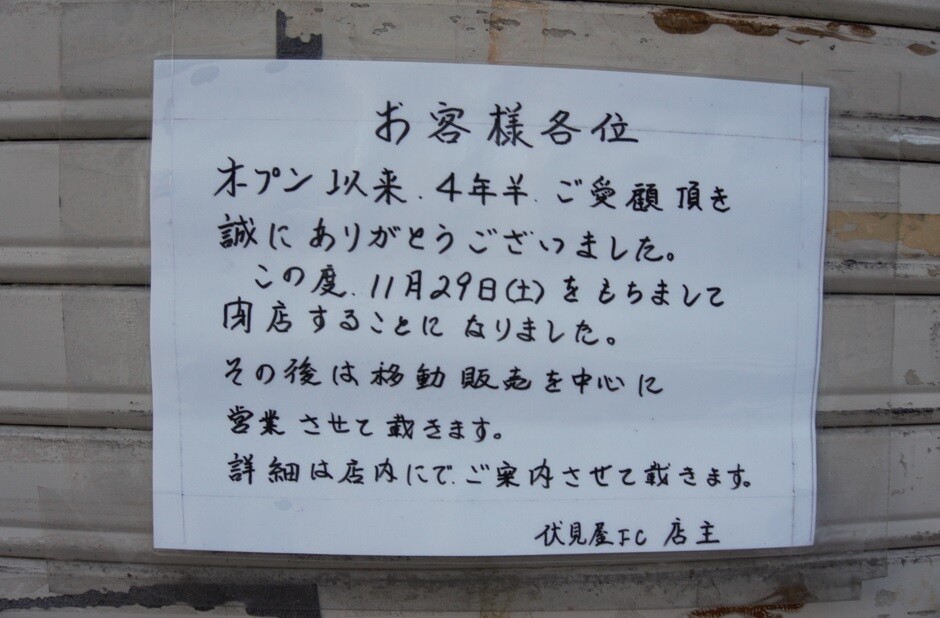 お客様各位
オープン以来、4年半、ご愛顧頂き
誠にありがとうございました。
この度、11月29日(土)をもちまして
閉店することになりました。
その後は移動販売を中心に
営業させて載きます。
詳細は店内にて、ご案内させて載きます。
伏見屋FC 店主